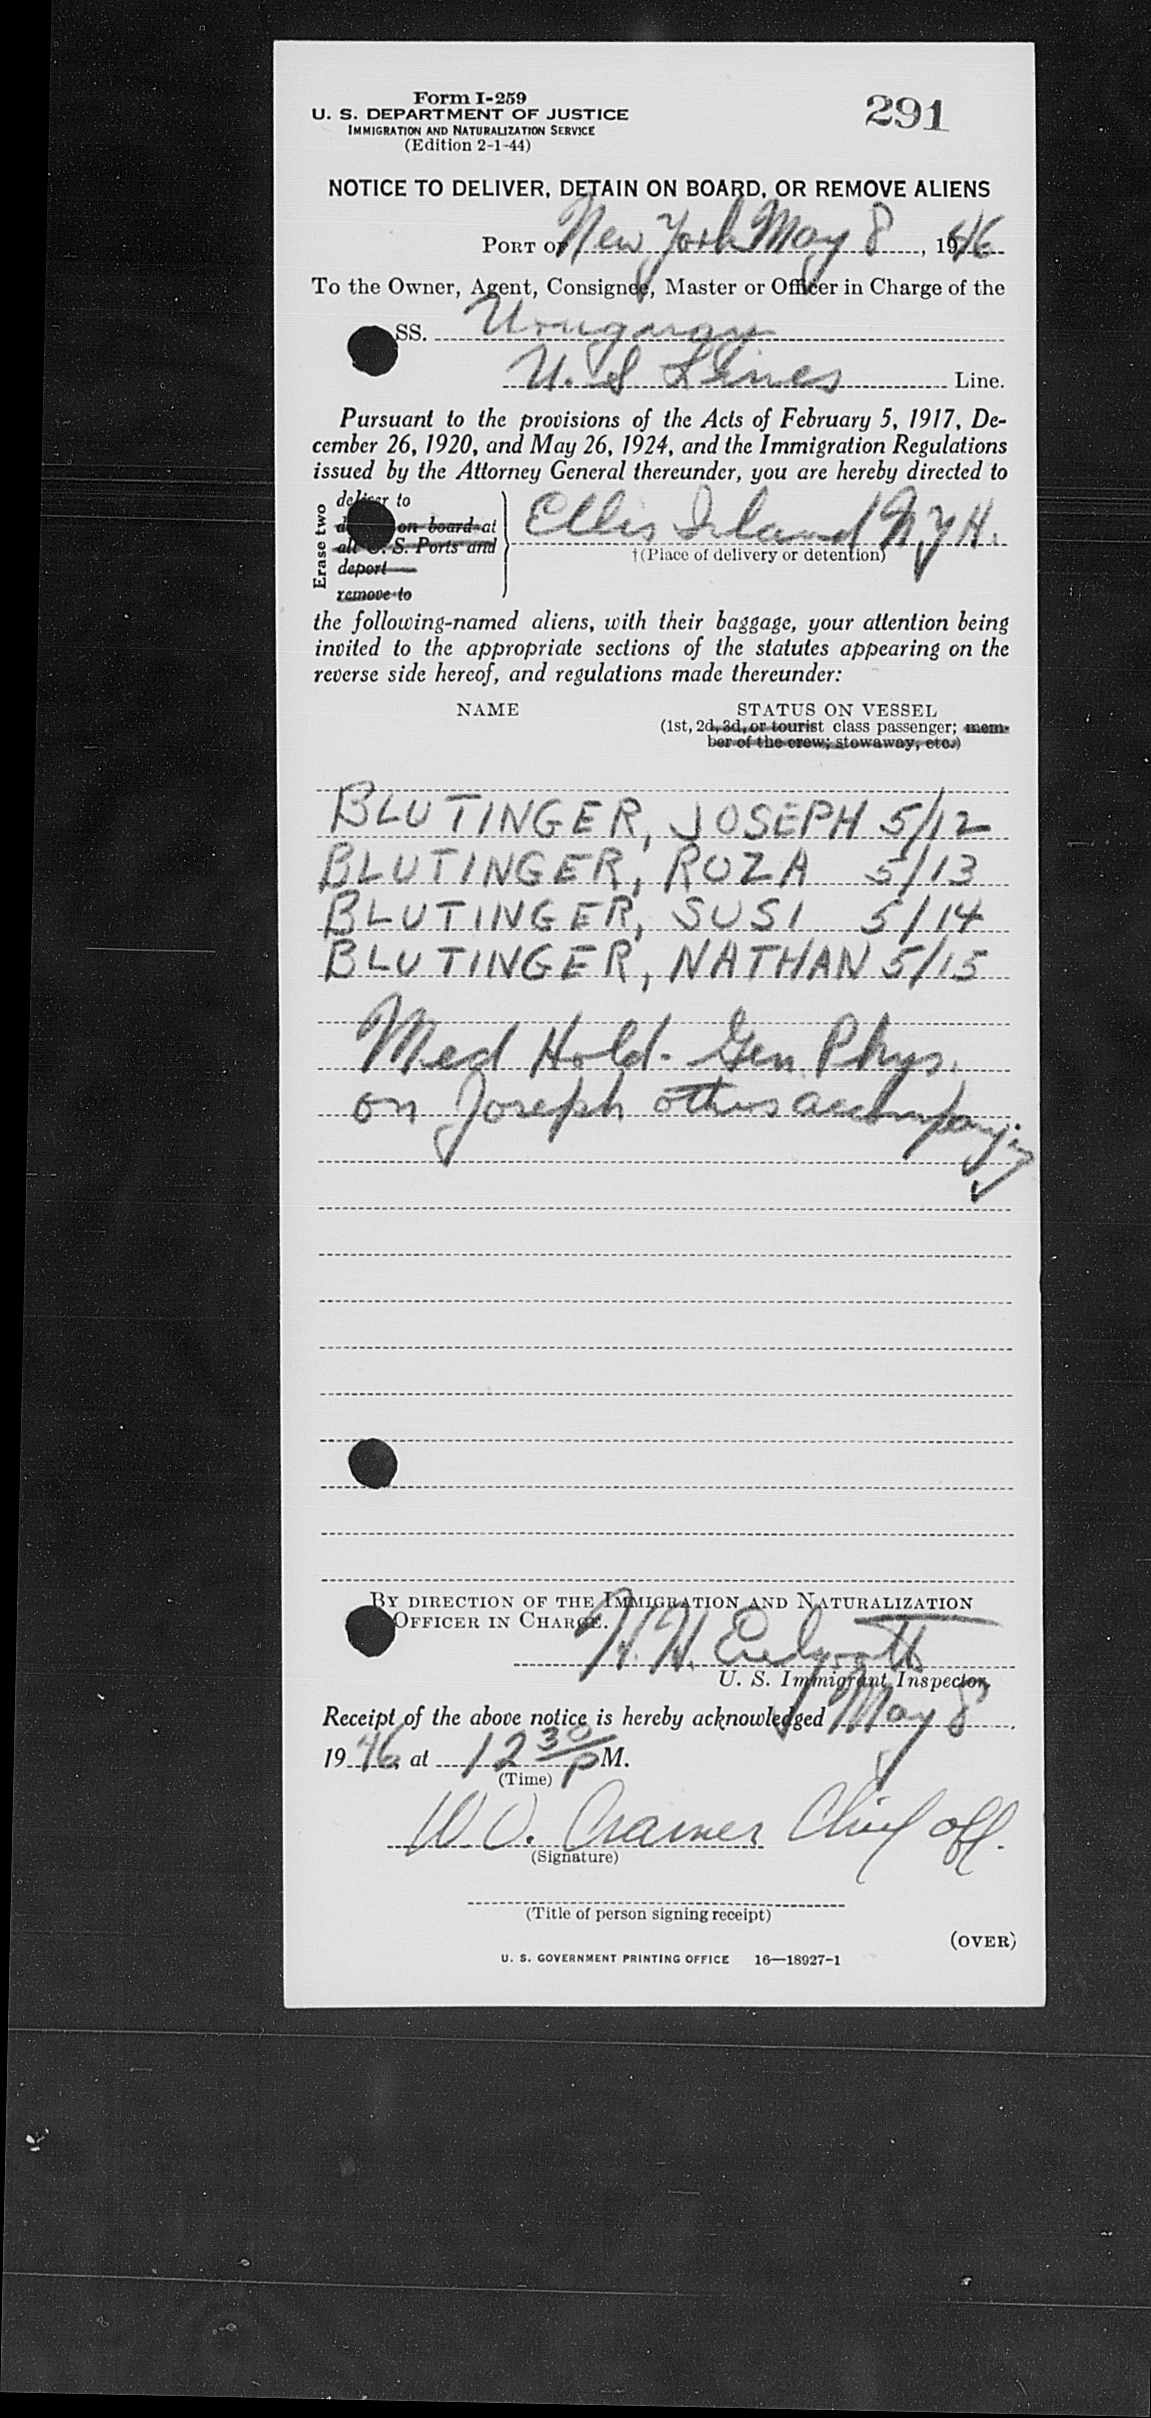 Form I-259
U. S. DEPARTMENT OF JUSTICE
IMMIGRATION AND NATURALIZATION SERVICE
(Edition 2-1-44)
291
NOTICE TO DELIVER, DETAIN ON BOARD, OR REMOVE ALIENS
PORT OF New York May 8, 1946
To the Owner, Agent, Consignee, Master or Officer in Charge of the
SS. Urugaray
U. S Lines Line.
Pursuant to the provisions of the Acts of February 5, 1917, De-
cember 26, 1920, and May 26, 1924, and the Immigration Regulations
issued by the Attorney General thereunder, you are hereby directed to
Erase two
deliver to
on board at
all U. S. Ports and
deport
remove to
Ellis Island N.Y.H.
†(Place of delivery or detention)
the following-named aliens, with their baggage, your attention being
invited to the appropriate sections of the statutes appearing on the
reverse side hereof, and regulations made thereunder:
NAME STATUS ON VESSEL
(1st, 2d, 3d, or tourist class passenger; mem-
ber of the crew; stowaway, etc.)
BLUTINGER, JOSEPH 5/12
BLUTINGER, ROZA 5/13
BLUTINGER, SUSI 5/14
BLUTINGER, NATHAN 5/15
Med Hold. Gen Phys.
on Joseph others accompanying
BY DIRECTION OF THE IMMIGRATION AND NATURALIZATION
OFFICER IN CHARGE.
H. H.
U. S. Immigrant Inspector.
Receipt of the above notice is hereby acknowledged May 8
1946 at 12 30 P M.
(Time)
W. O. Cramer Chief off.
(Signature)
(Title of person signing receipt)
(OVER)
U. S. GOVERNMENT PRINTING OFFICE 16—18927-1